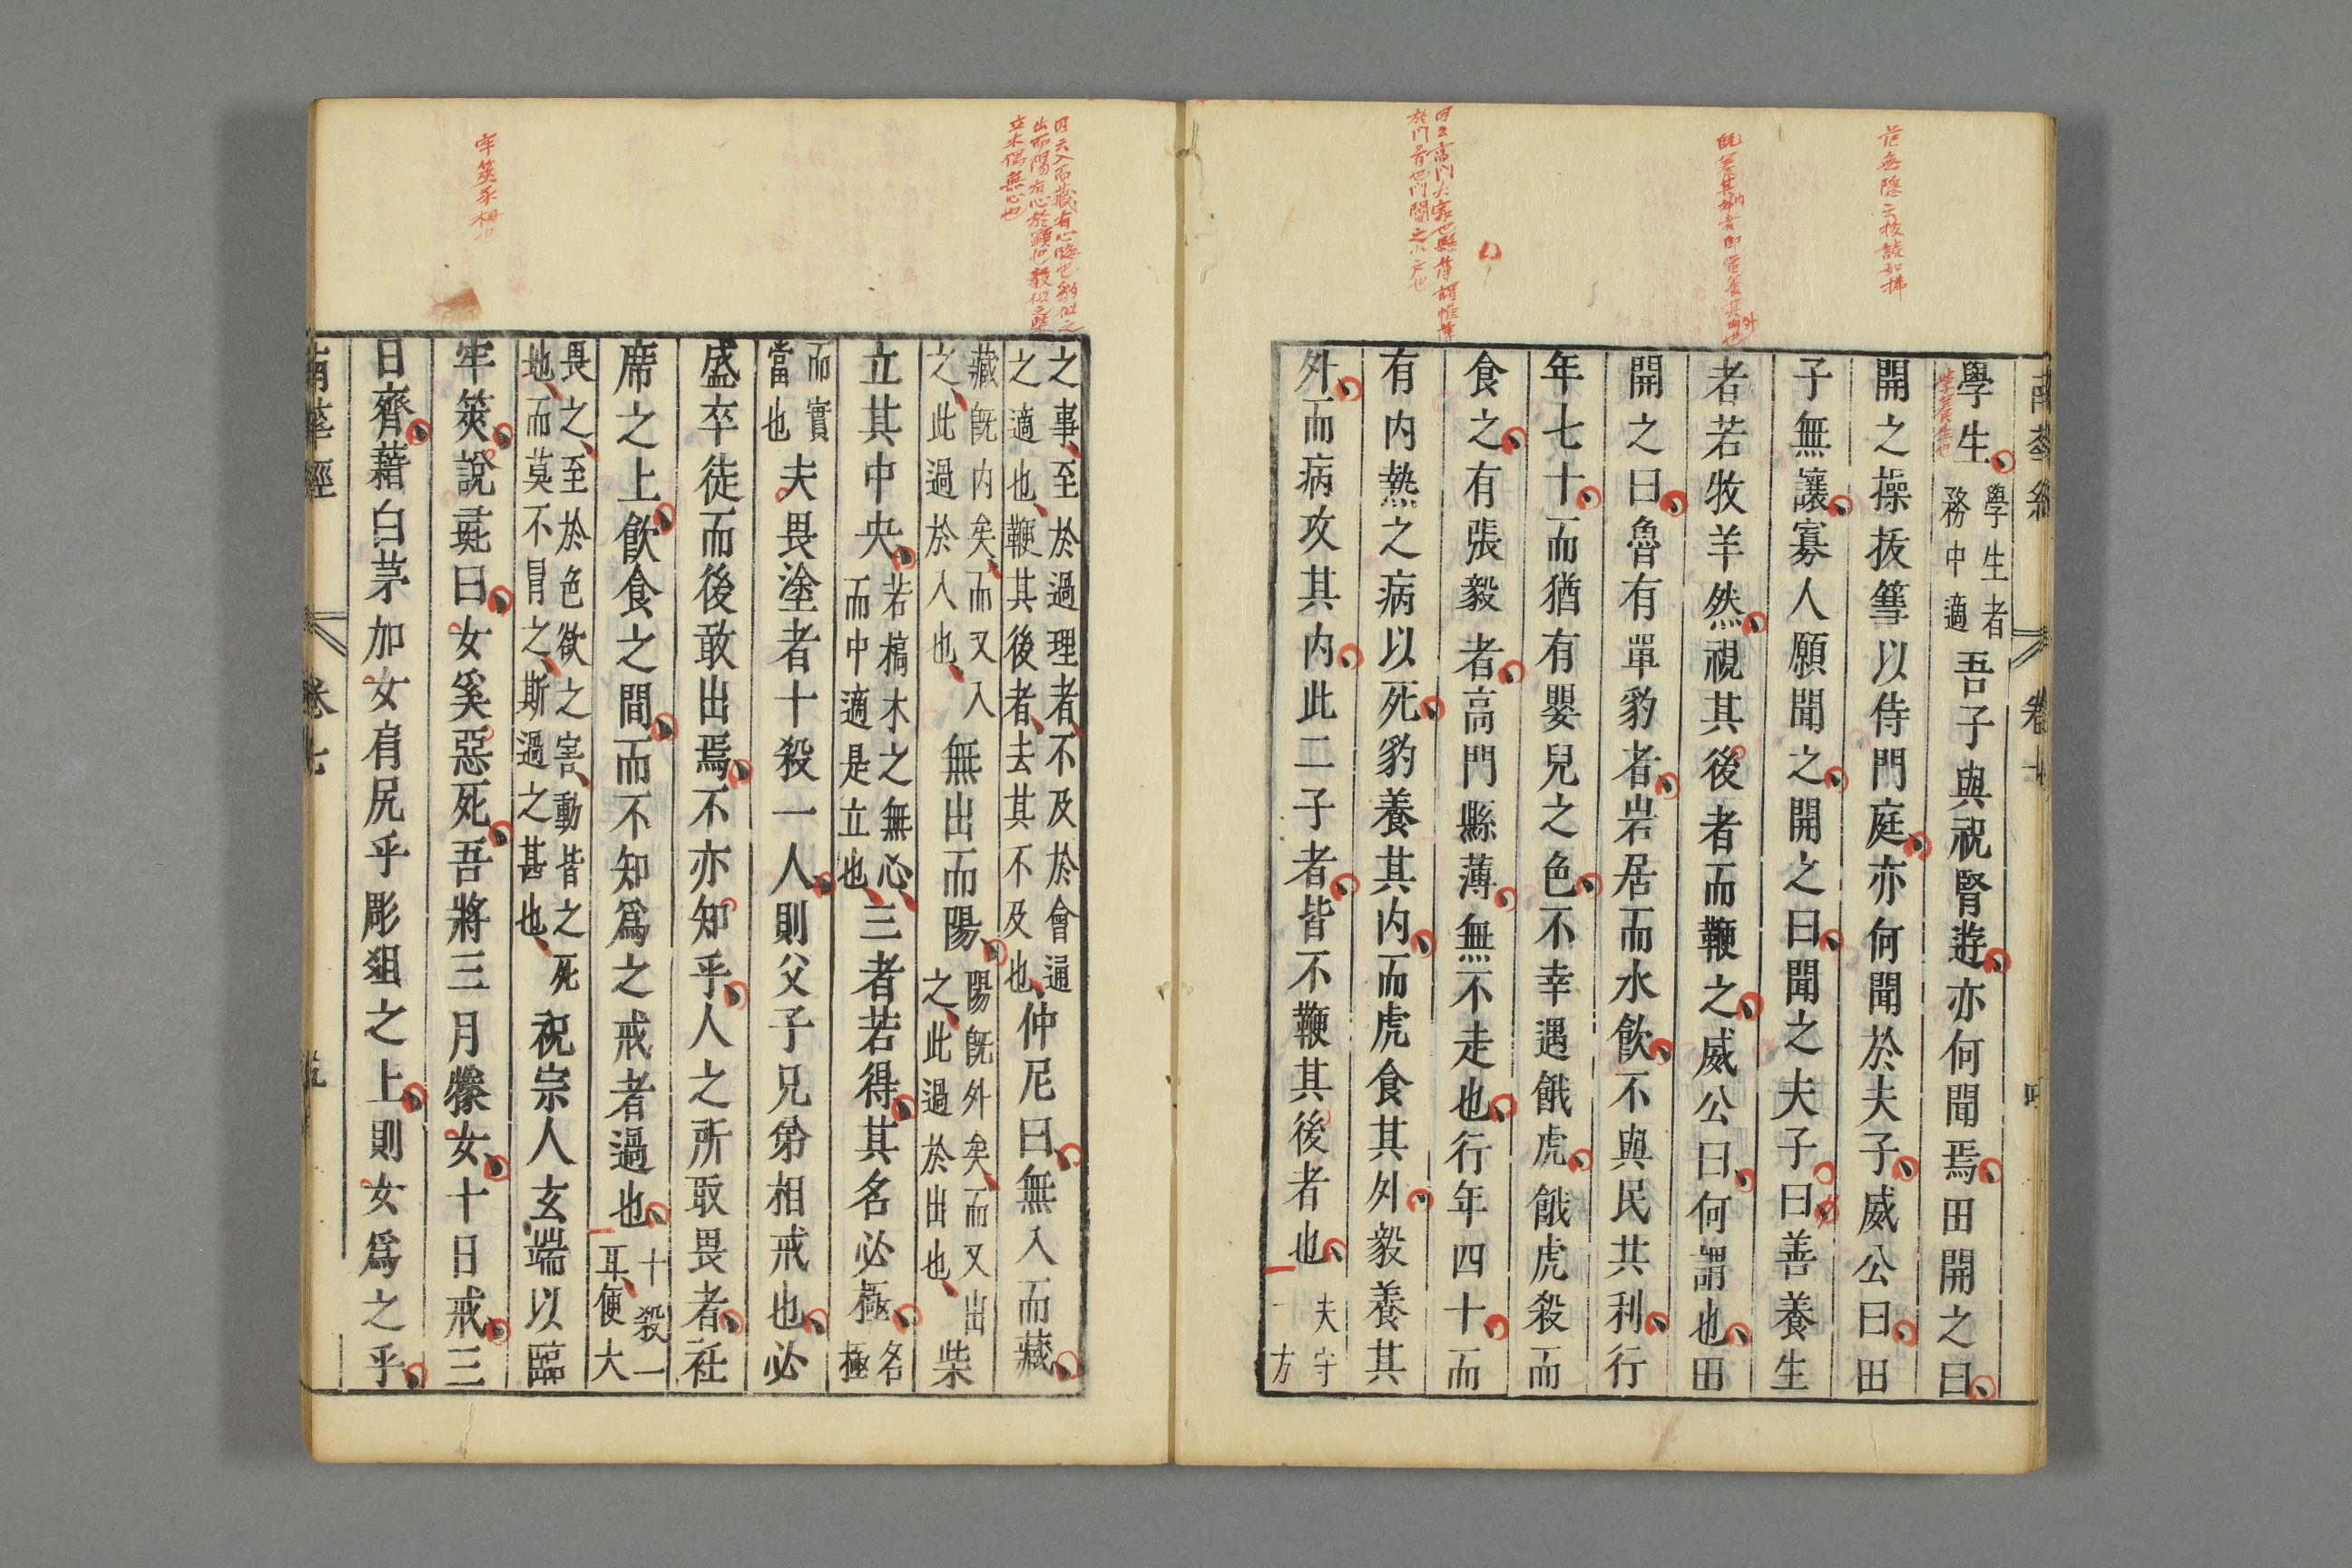 南華經 卷七
學生學生者務中適吾子與祝腎遊亦何聞焉田開之曰
開之操拔篲以侍門庭亦何聞於夫子威公曰田
子無讓寡人願聞之開之曰聞之夫子曰善養生
者若牧羊然視其後者而鞭之威公曰何謂也田
開之曰魯有單豹者岩居而水飲不與民共利行
年七十而猶有嬰兒之色不幸遇餓虎餓虎殺而
食之有張毅者高門縣薄無不走也行年四十而
有內熱之病以死豹養其內而虎食其外毅養其
外而病攻其內此二子者皆不鞭其後者也夫守一方
之事至於過理者不及於會通之適也鞭其後者去其不及也仲尼曰無入而藏
藏旣內矣而又入之此過於入也無出而陽陽旣外矣而又出之此過於出也柴
立其中央若槁木之無心而中適是立也三者若得其名必極名極
而實當也夫畏塗者十殺一人則父子兄弟相戒也必
盛卒徒而後敢出焉不亦知乎人之所取畏者衽
席之上飲食之間而不知爲之戒者過也十殺一耳便大
畏之至於色欲之害動皆之死地而莫不冒之斯過之甚也祝宗人玄端以臨
牢筴說彘曰女奚惡死吾將三月㹖女十日戒三
日齊藉白茅加女肩尻乎彫俎之上則女爲之乎
南華經 卷七
范無隱云拔詵如拂
學養生也
旣養其內外者即當養其外內也
於門者也門閭之小戶也
出而陽有心於顯也毅似之柴
立木偶無心也
牢筴豕柵也